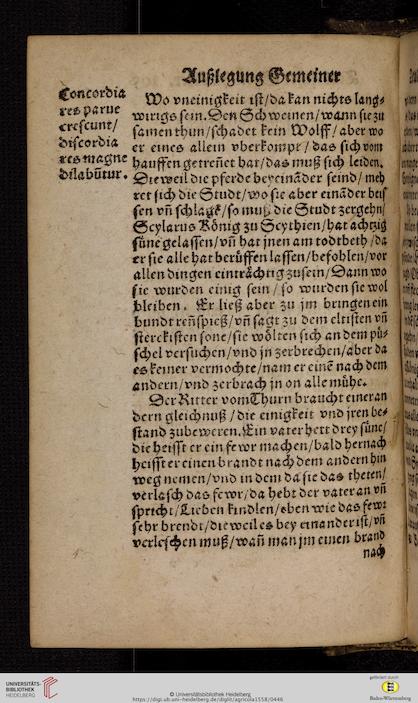 Außlegung Gemeiner
Concordia
res parue
crescunt/
discordia
res magne
dilabũtur.
Wo vneinigkeit ist/da kan nichts lang-
wiriges sein. Den Schweinen/wann sie zu
samen thun/schadet kein Wolff/aber wo
er eines allein vberkompt/das sich vom
hauffen getreñet hat/das muß sich leiden.
Dieweil die pferde beyeinãder seind/meh
ret sich die Studt/wo sie aber einãder beis
sen vñ schlagẽ/so muß die Studt zergehn/
Scylarus König zu Scythien/hat achtzig
süne gelassen/vñ hat jnen am todtbeth/da
er sie alle hat berüffen lassen/befohlen/vor
allen dingen einträchtig zusein/Dann wo
sie wurden einig sein/so wurden sie wol
bleiben. Er ließ aber zu jm bringen ein
bundt reñspieß/vñ sagt zu dem eltisten vñ
sterckisten sone/sie wölten sich an dem pü-
schel versuchen/vnd jn zerbrechen/aber da
es keiner vermochte/nam er einẽ nach dem
andern/vnd zerbrach jn on alle mühe.
Der Ritter vom Thurn braucht einer an
dern gleichnuß/die einigkeit vnd jren be-
stand zubeweren. Ein vater hett drey süne/
die heisst er ein fewr machen/bald hernach
heisst er einen brandt nach dem andern hin
weg nemen/vnd in dem da sie das theten/
verlasch das fewr/da hebt der vater an vñ
spricht/Lieben kindlen/eben wie das fewr
sehr brendt/dieweil es bey einander ist/vñ
verleschen muß/wañ man jm einen brand
nach
UNIVERSITÄTS-
BIBLIOTHEK
HEIDELBERG
© Universitätsbibliothek Heidelberg
https://digi.ub.uni-heidelberg.de/diglit/agricola1558/0446
gefördert durch
Baden-Württemberg